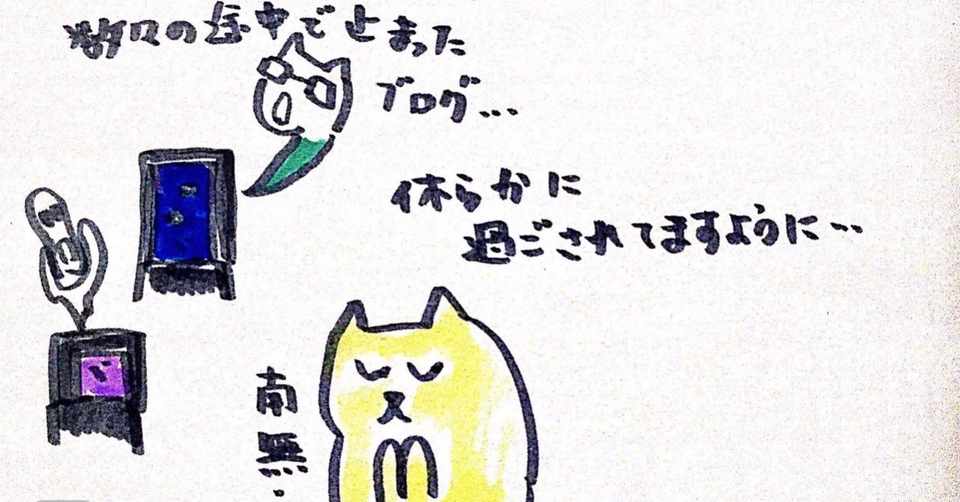 数々の途中で止まった
ブログ…
休らかに
過ごされてますように…
南無.